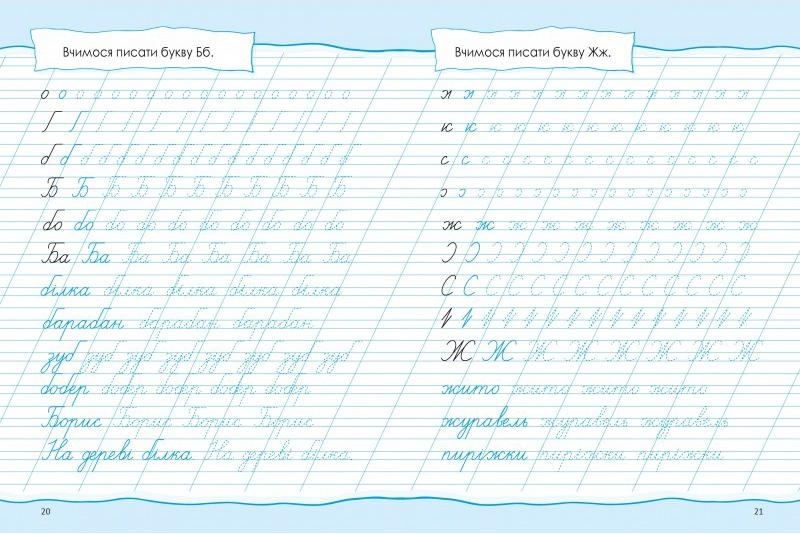 Вчимося писати букву Бб.
о о о о о о о о о о о о о о о о о о о о о о
б б б б б б б б б б б б б б б б б б
Б Б Б Б Б Б Б Б Б Б Б
бо бо бо бо бо бо бо бо бо бо
Ба Ба Ба Ба Ба Ба Ба Ба
білка білка білка білка білка
барабан барабан барабан
зуб зуб зуб зуб зуб зуб зуб зуб
бобер бобер бобер бобер бобер
Борис Борис Борис Борис
На дереві білка На дереві білка
20
Вчимося писати букву Жж.
с с с с с с с с с с с с с с с с с с
ж ж ж ж ж ж ж ж ж ж
С С С С С С С С С С С С С С С С
Ж Ж Ж Ж Ж Ж Ж Ж
жито жито жито жито
журавель журавель журавель
пиріжки пиріжки пиріжки
21